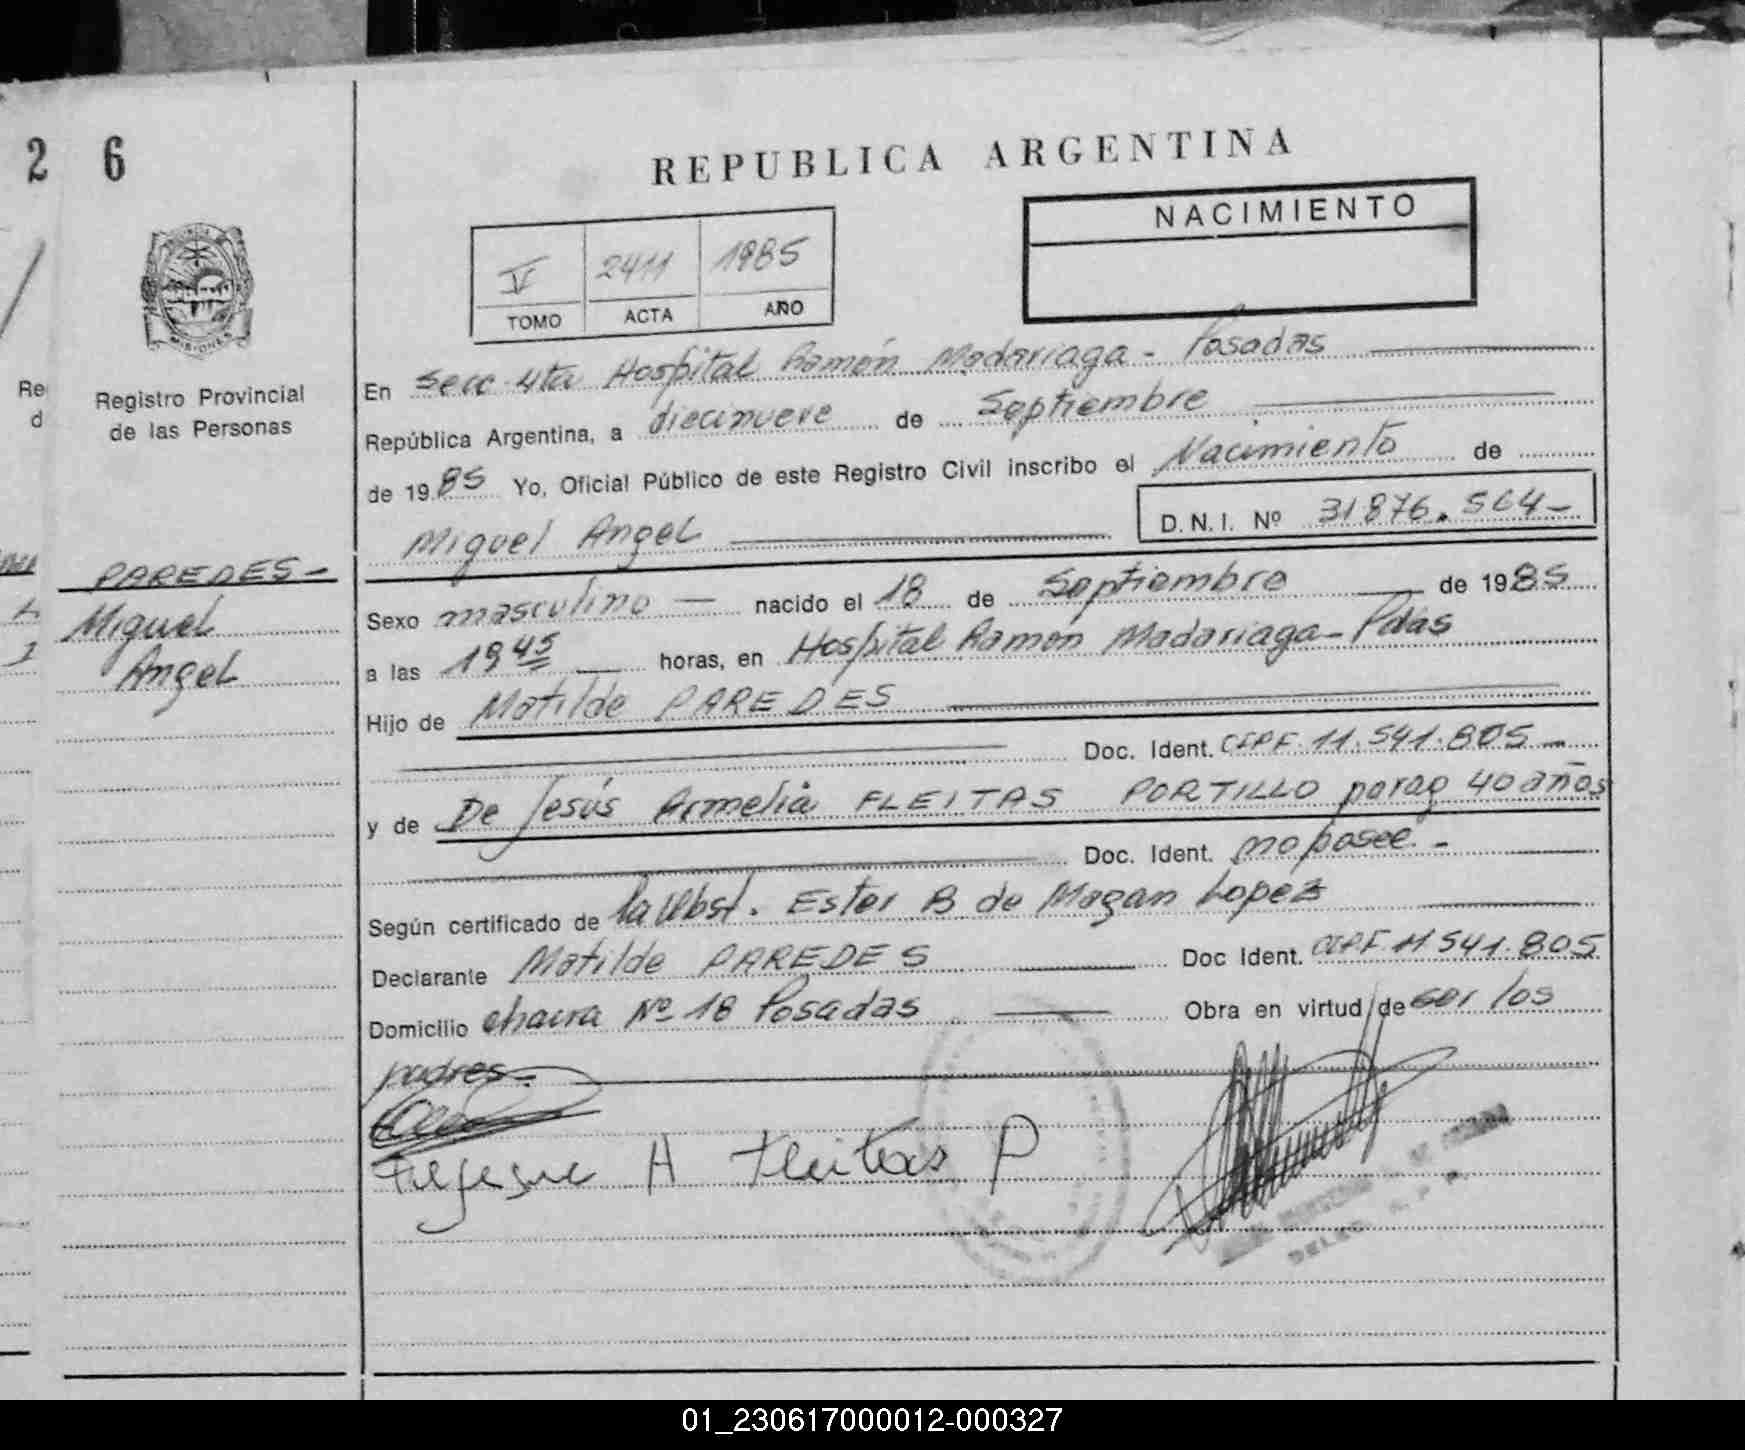 2 6
REPUBLICA ARGENTINA
NACIMIENTO
V 2411 1985
TOMO ACTA AÑO
MISIONES
Re
d
Registro Provincial
de las Personas
En Secc 4ta Hospital Ramón Madariaga - Posadas
República Argentina, a diecinueve de Septiembre
de 1985 Yo, Oficial Público de este Registro Civil inscribo el Nacimiento de
Miguel Angel D.N.I. Nº 31876.564-
PAREDES-
Miguel
Angel
Sexo masculino — nacido el 18 de Septiembre de 1985
a las 19 45 horas, en Hospital Ramon Madariaga - Pdas
Hijo de Matilde PAREDES
Doc. Ident. CIPF. 11.541.805 -
y de De Jesús Armelia FLEITAS PORTILLO parag 40 años
Doc. Ident. no posee. -
Según certificado de la Obst. Ester B de Mazan Lopez
Declarante Matilde PAREDES Doc Ident. CIPF. 11.541.805
Domicilio chacra Nº 18 Posadas Obra en virtud de ser los
padres.-
H Fleitas P
01_230617000012-000327